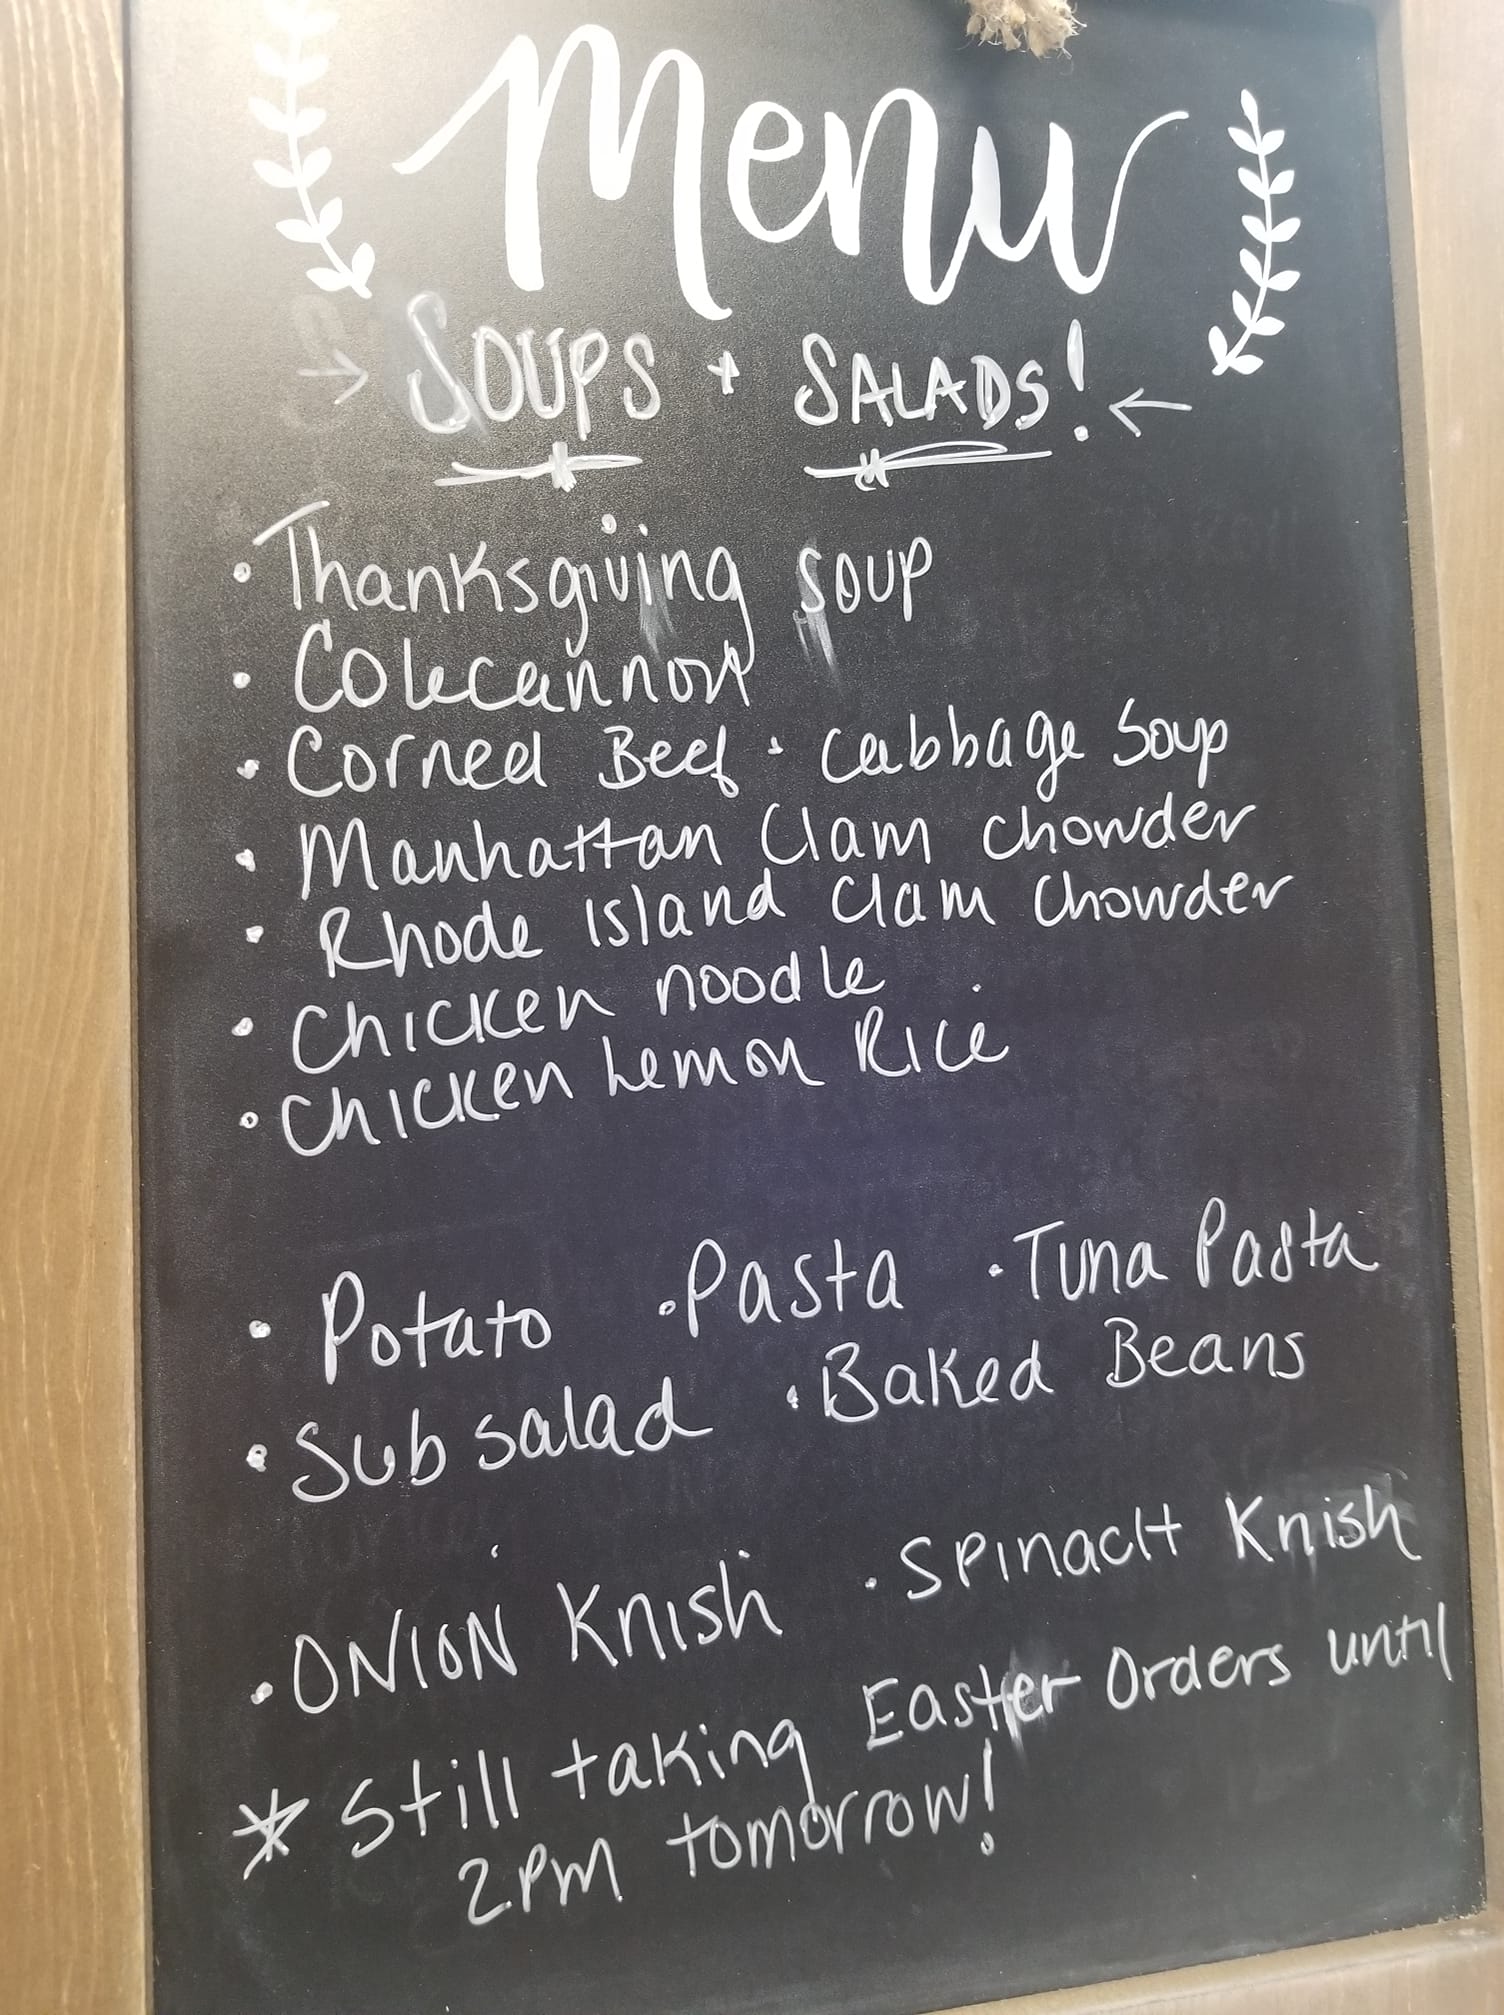 Menu
→ SOUPS + SALADS! ←
• Thanksgiving soup
• Colecannon
• Corned Beef + Cabbage Soup
• Manhattan Clam Chowder
• Rhode Island Clam Chowder
• Chicken noodle
• Chicken Lemon Rice
• Potato • Pasta • Tuna Pasta
• Sub salad • Baked Beans
• ONION Knish • SPINACH Knish
* Still taking Easter Orders until
2PM tomorrow!